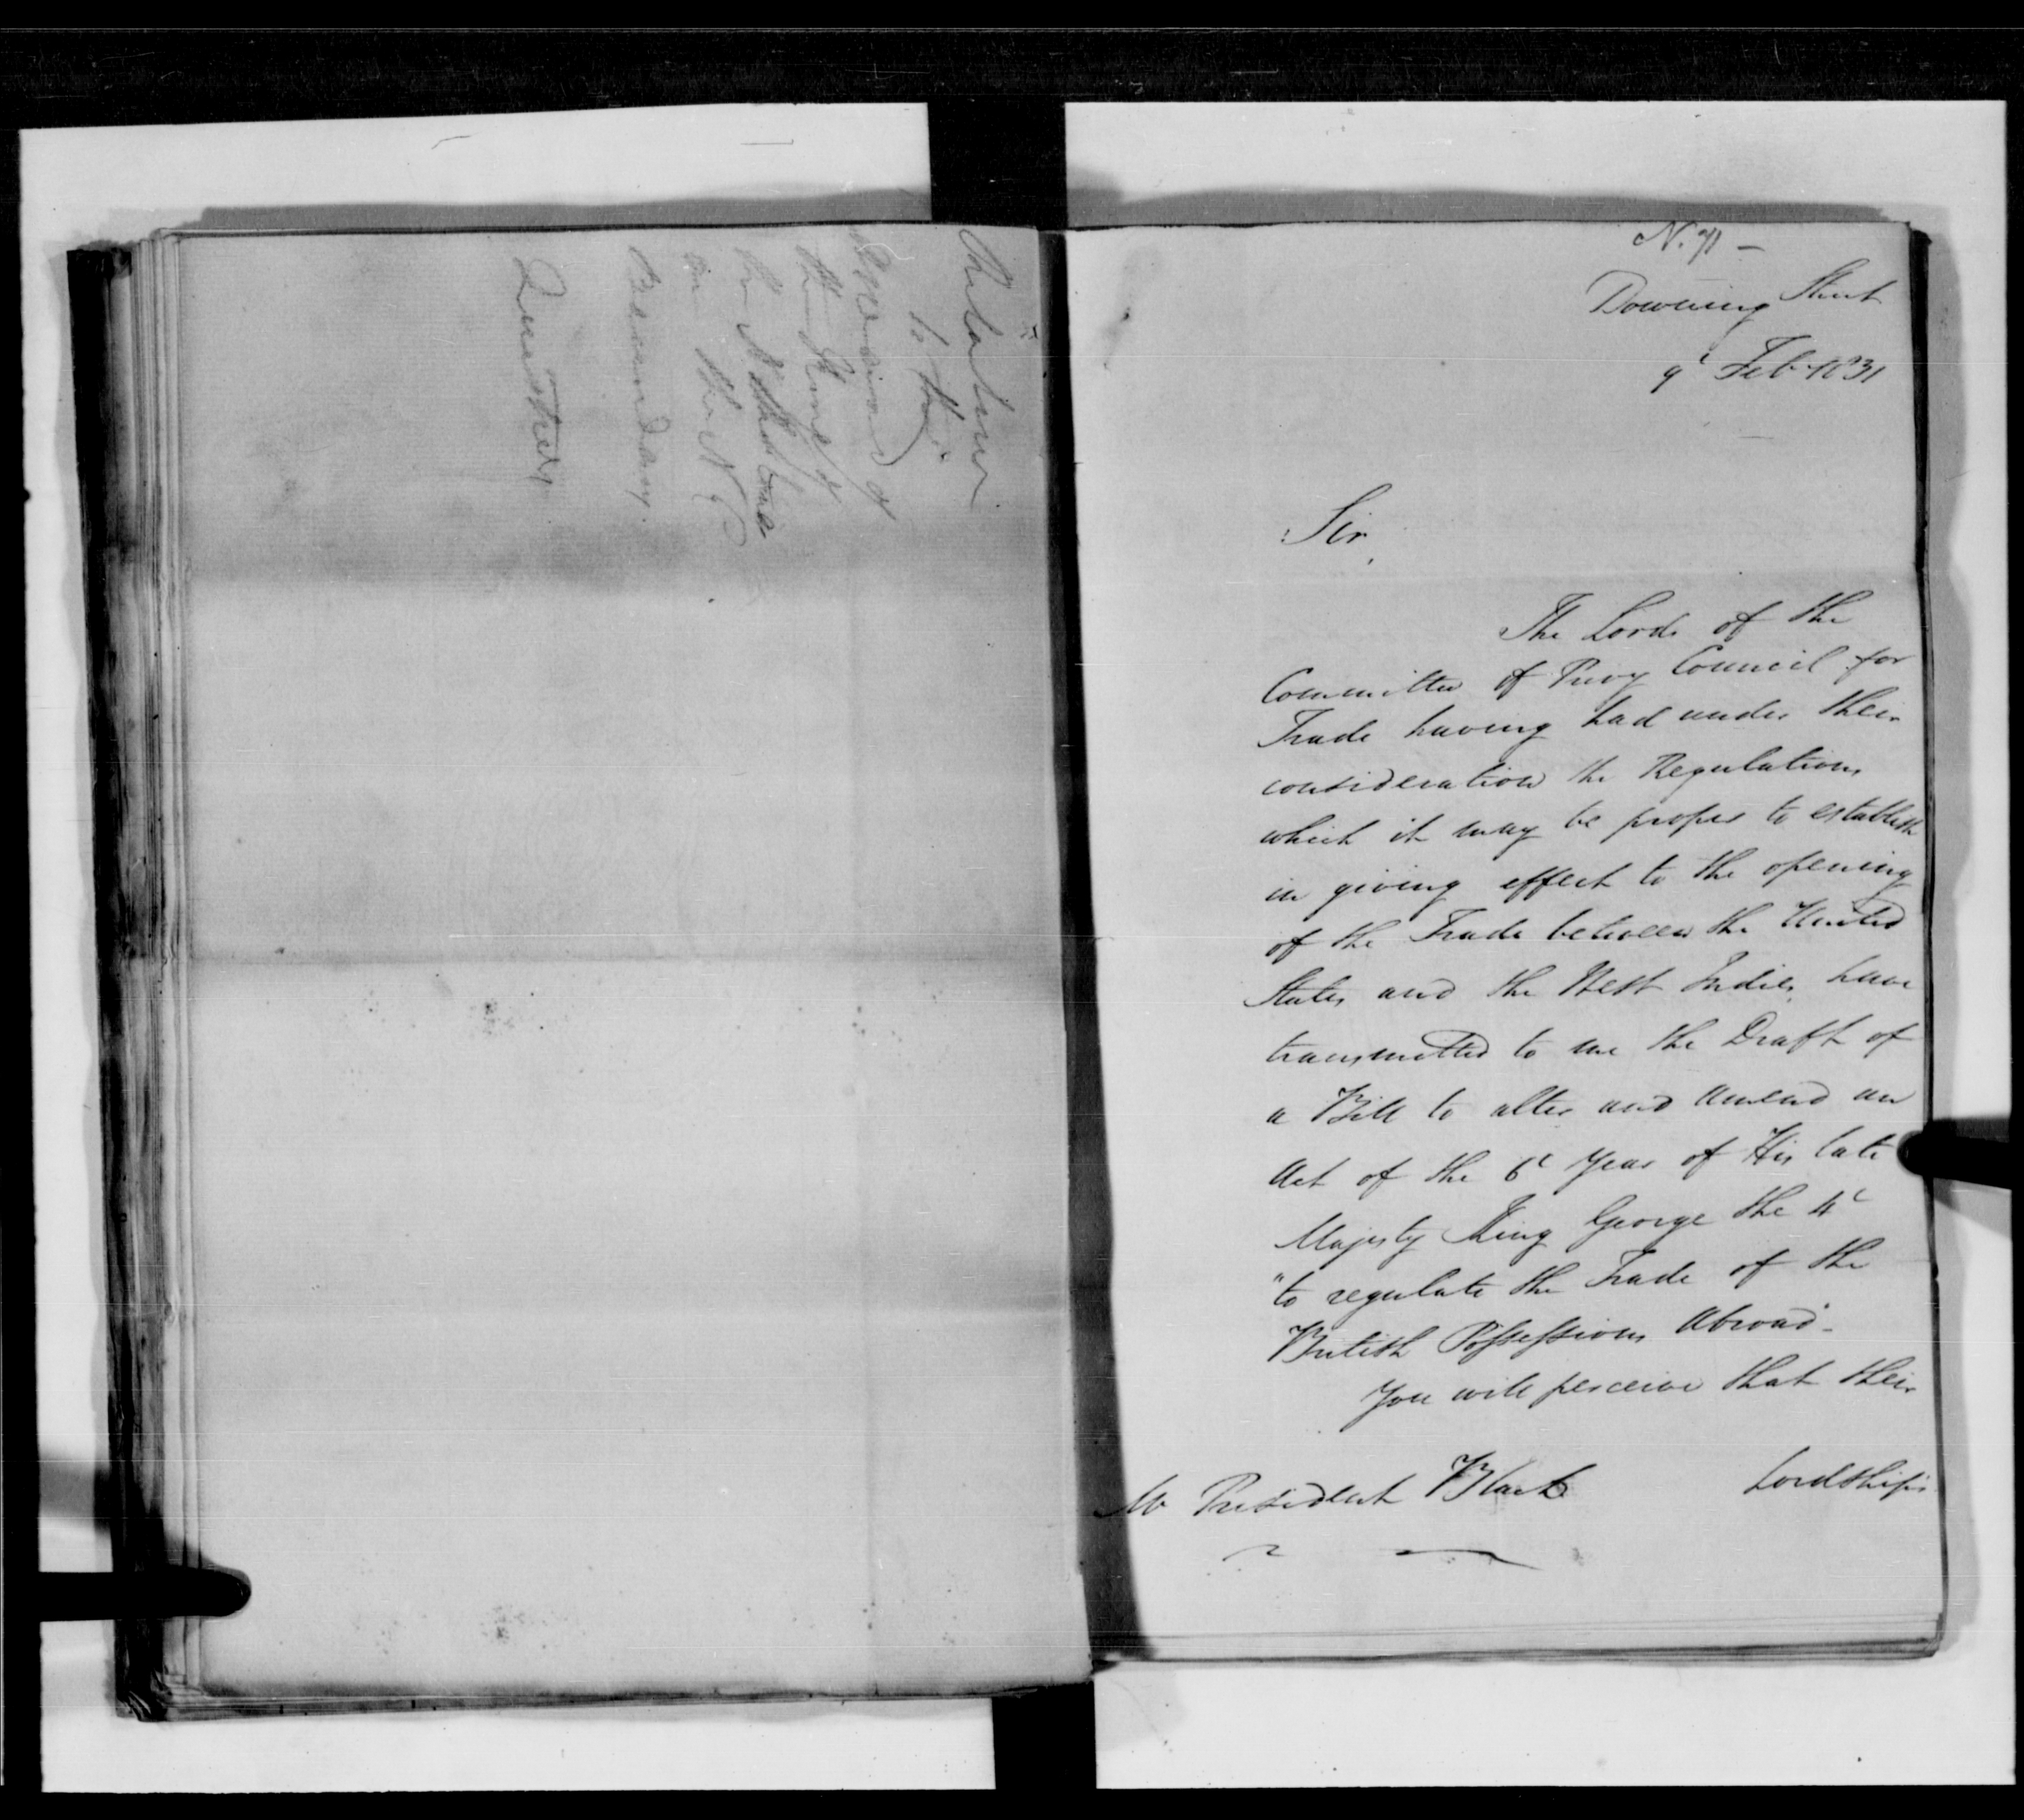 Relative
to the
Expences of
the Survey of
in the N E
Boundary
Question
N. 71 -
Downing Street
9t Feb 1831
Sir,
The Lords of the
Committee of Privy Council for
Trade having had under their
consideration the Regulations
which it may be proper to establish
in giving effect to the opening
of the Trade between the United
States and the West Indies, have
transmitted to me the Draft of
a Bill to alter and amend an
Act of the 6t Year of His late
Majesty King George the 4t
"to regulate the Trade of the
British Possessions Abroad.
You will perceive that their
Lordships
Mr President Black